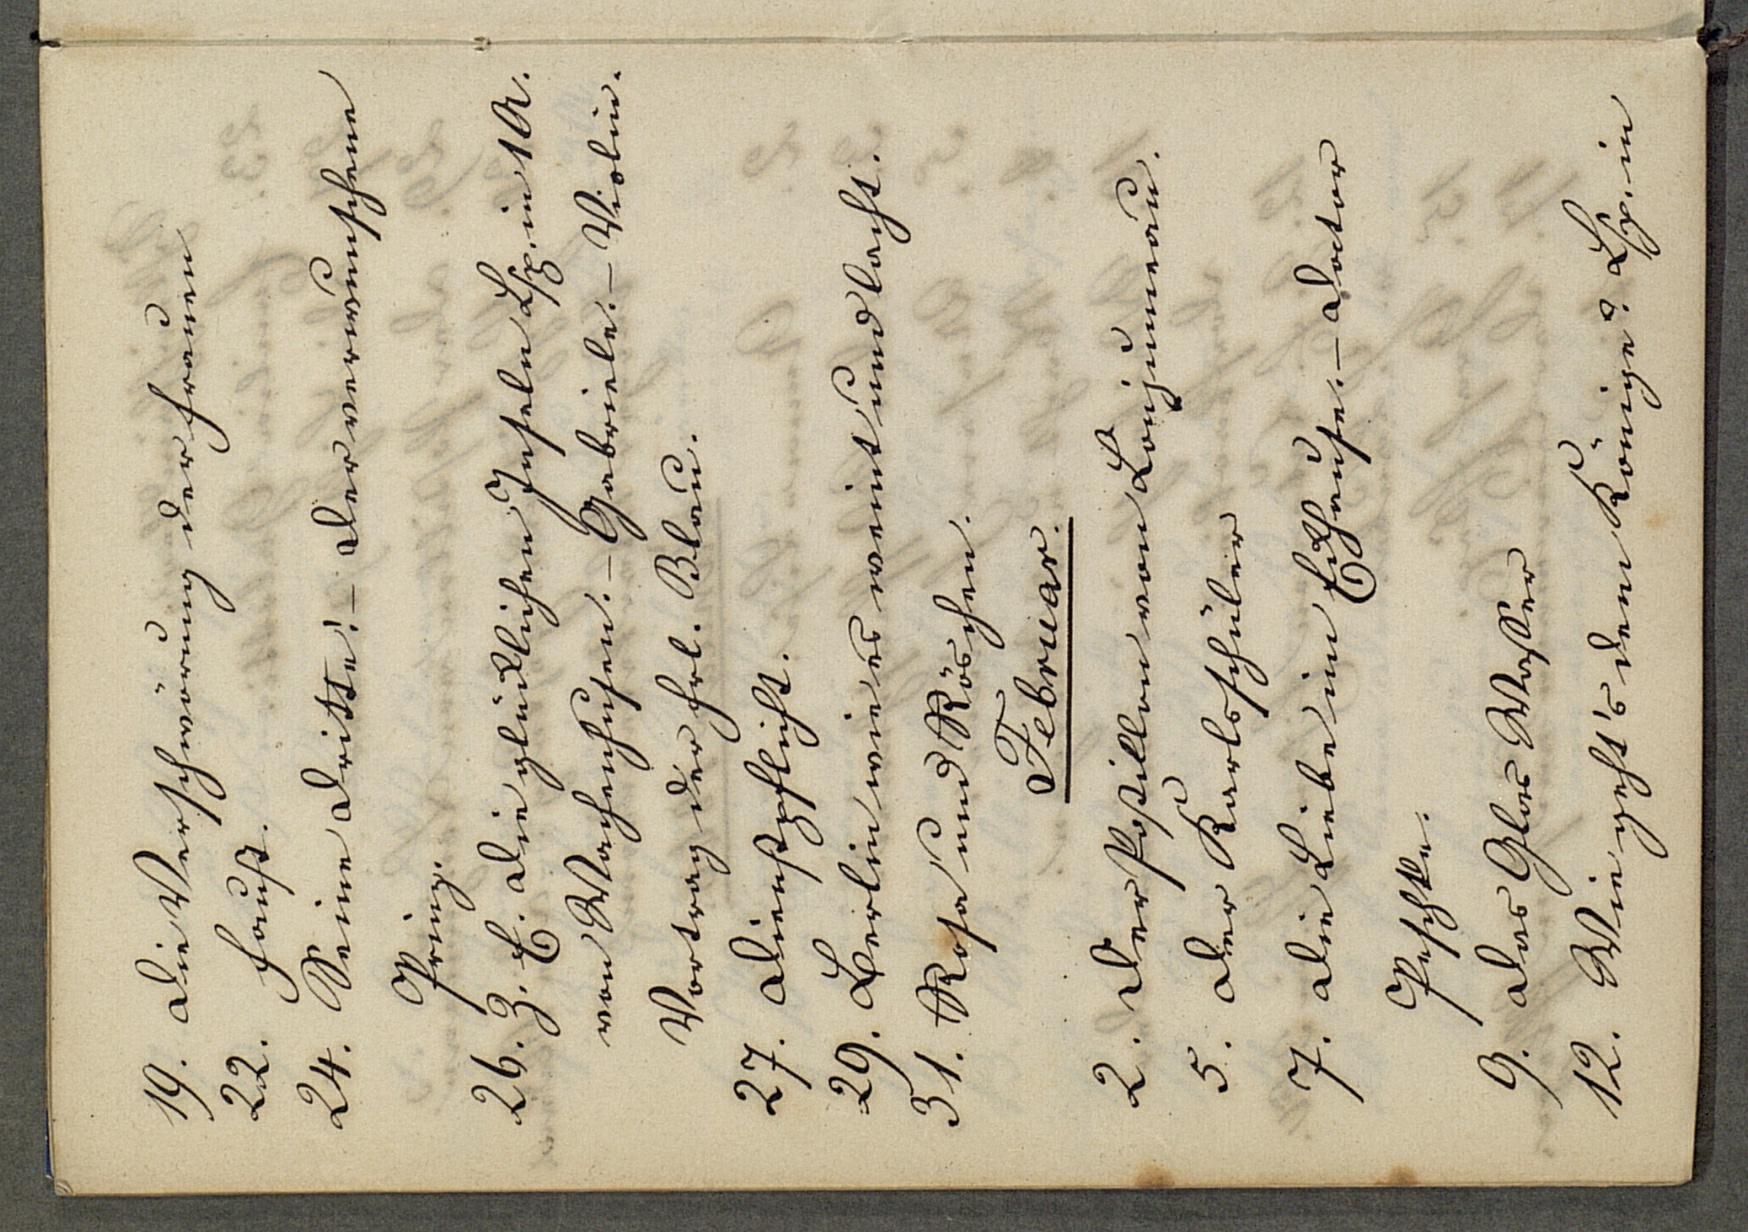 19. Die Verschwörung der Frauen
22. Faust.
24. Seine Dritte! – Der verwunschene
Prinz.
26. Z. E. Die glücklichen Inseln Lsp. in 1 A.
von Wachenhusen. – Gabriele. – Violin.
Vortrag der Frl. Blau.
27. Dienstpflicht.
29. Berlin wie es weint und lacht.
31. Rosa und Röschen.
Februar.
2. Der Postillon von Lonjumeau.
5. Der Karlsschüler
7. Die Liebe im Eckhause. – Doctor
Peschke.
9. Das Glas Wasser
12. Wie geht's dem Könige? Lsp. in